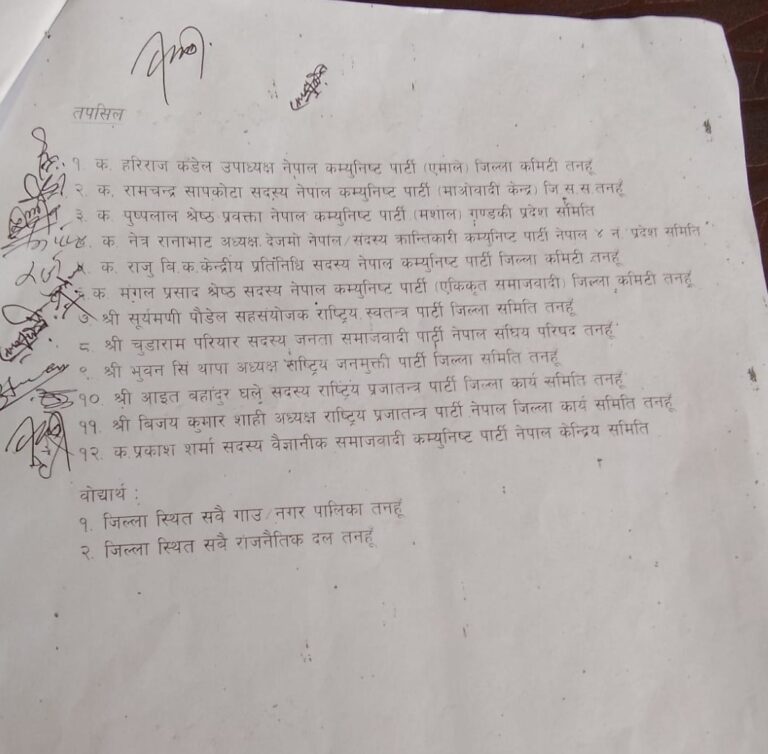 तपसिल
१. क. हरिराज कंडेल उपाध्यक्ष नेपाल कम्युनिष्ट पार्टी (एमाले) जिल्ला कमिटी तनहूँ
२. क. रामचन्द्र सापकोटा सदस्य नेपाल कम्युनिष्ट पार्टी (माओवादी केन्द्र) जि.स.स.तनहूँ
३. क. पुष्पलाल श्रेष्ठ प्रवक्ता नेपाल कम्युनिष्ट पार्टी (मशाल) गण्डकी प्रदेश समिति
४. क. नेत्र रानाभाट अध्यक्ष देजमो नेपाल/सदस्य क्रान्तिकारी कम्युनिष्ट पार्टी नेपाल ४ न. प्रदेश समिति
५. क. राजु बि.क.केन्द्रीय प्रतिनिधि सदस्य नेपाल कम्युनिष्ट पार्टी जिल्ला कमिटी तनहूँ
६. क. मंगल प्रसाद श्रेष्ठ सदस्य नेपाल कम्युनिष्ट पार्टी (एकिकृत समाजवादी) जिल्ला कमिटी तनहूँ
७. श्री सूर्यमणी पौडेल सहसंयोजक राष्ट्रिय स्वतन्त्र पार्टी जिल्ला समिति तनहूँ
८. श्री चुडाराम परियार सदस्य जनता समाजवादी पार्टी नेपाल संघिय परिषद तनहूँ
९. श्री भुवन सिं थापा अध्यक्ष राष्ट्रिय जनमुक्ती पार्टी जिल्ला समिति तनहूँ
१०. श्री आइत बहादुर घले सदस्य राष्ट्रिय प्रजातन्त्र पार्टी जिल्ला कार्य समिति तनहूँ
११. श्री बिजय कुमार शाही अध्यक्ष राष्ट्रिय प्रजातन्त्र पार्टी नेपाल जिल्ला कार्य समिति तनहूँ
१२. क.प्रकाश शर्मा सदस्य वैज्ञानीक समाजवादी कम्युनिष्ट पार्टी नेपाल केन्द्रिय समिति
वोद्यार्थ :
१. जिल्ला स्थित सवै गाउ/नगर पालिका तनहूँ
२. जिल्ला स्थित सवै राजनैतिक दल तनहूँ